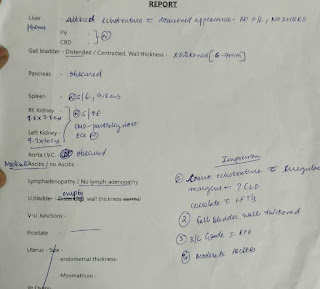 REPORT
Liver - altered echotexture c coarsened appearance. No F/L, No IHBRD
PV -
CBD - (N)
Gall bladder - Distended / Contracted. Wall thickness - thickened [6-7mm]
Pancreas - obscured
Spleen - (N) 9.8cms
Rt. Kidney (N)
CMD - partially lost
Left Kidney
Aorta I.V.C. obscured
Moderate Ascitis / no Ascitis -
Lymphadenopathy / No lymph adenopathy
U.bladder - empty Distended, wall thickness normal
V-U Junctions -
Prostate -
Uterus - Size -
-endometrial thickness-
-Myometrium -
Impression
① Coarse echotexture c irregular
margins - ? CLD
correlate c LFTs
② Gall bladder wall thickened
③ B/L Grade I RPD
④ Moderate Ascites